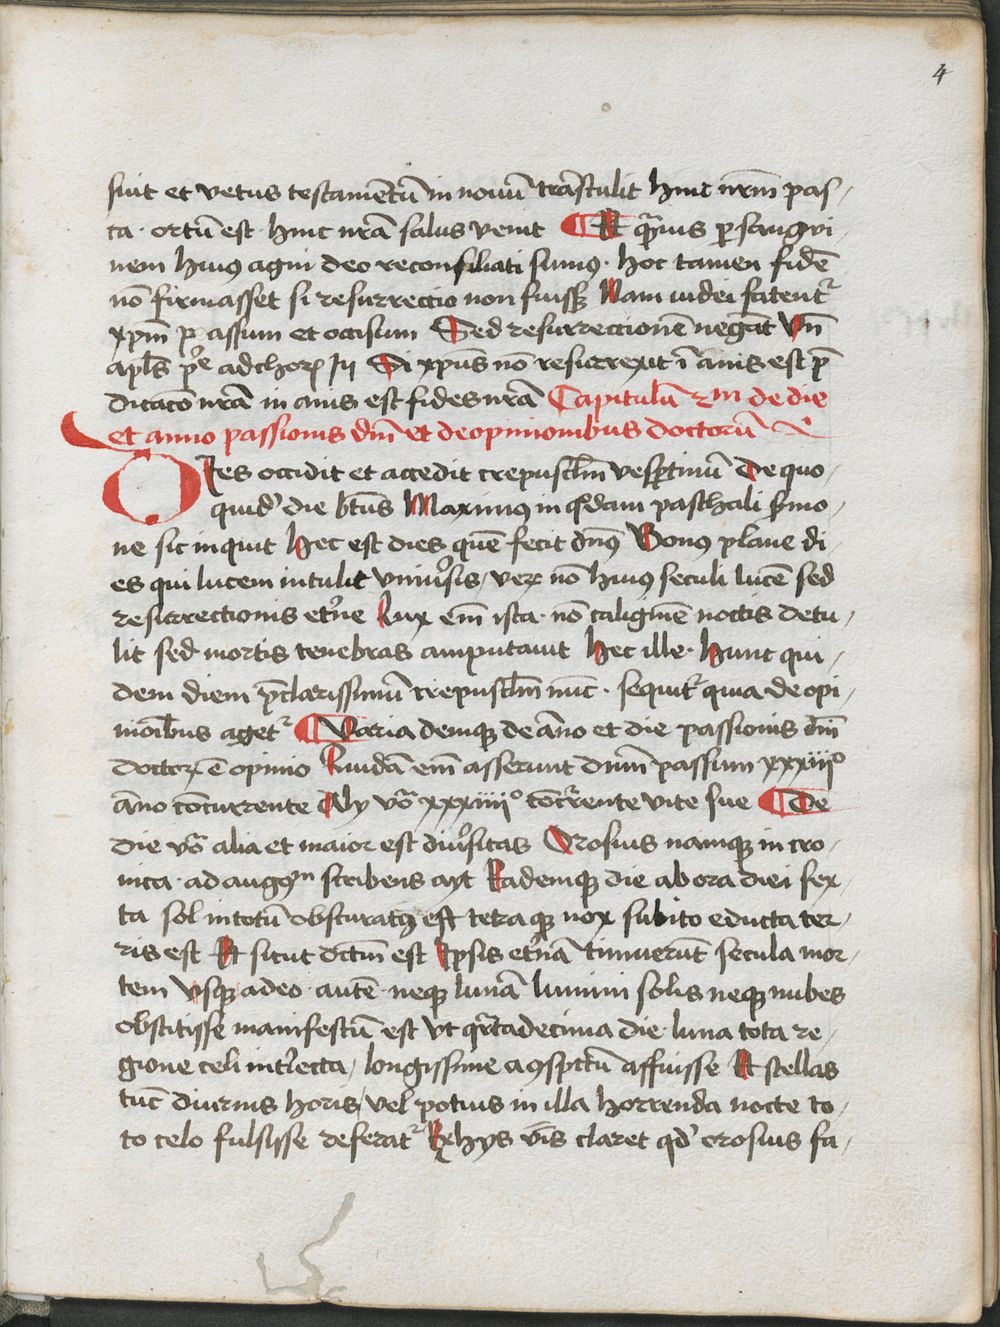 4
suit et vetus testamētū in nouū trāstulit hinc nrm̄ pas-
ca · ortū est · hinc nrā salus venit Et qr̄uis ꝑ sangwi-
nem huiꝰ agni deo reconsiliati sumus · hoc tamen fidē
nō firmasset si resurrectio non fuissꝫ Nam iudei fatentr̄
xpm̄ passum et occisum Sed resurrectionē negāt Vn̄
apls̄ Si xpūs nō resurrexit īanis est p̄
dicacō nrā inanis est fides nrā Capitulū 2m de die
et anno passionis dnī et de opinionibus doctorū
Dies occidit et accedit crepusclm̄ vesꝑtinū De quo-
quid' die btūs Maximus in qdam paschali ẜmo-
ne sic inquit Hec est dies quē fecit dnꝰ Bonꝰ plane di-
es qui lucem intulit vniuẜsis / nō huiꝰ seculi lucē sed
resurrectionis etn̄e Lux em̄ ista · nō caliginē noctis detu-
lit sed mortis tenebras amputauit Hec ille · Hunc qui-
dem diem p̄clarissimū crepusclm̄ nūc · sequitr̄ quia de opi-
nioībus agetr̄ Varia deniqꝫ de āno et die passionis dnī
doctoꝝ ē opinio Quidā em̄ asserunt dnm̄ passum xxxiijº
āno cōcurrente Alij vō xxxiiijº cōcr̄rente vite sue De
die vō alia et maior est diuẜsitas Orosius namqꝫ in cro-
nica · ad augꝰm scribens ayt Eademqꝫ die ab ora diei sex-
ta sol in totū obscuratꝰ est tetraqꝫ nox subito educta ter-
ris est Et sicut dctm̄ est Ipsis etn̄ā timuerūt secula mor-
tem vsqꝫ adeo · autē · neqꝫ lunā lumini solis neqꝫ nubes
obstitisse manifestū est vt qr̄tadecima die · luna tota re-
gione celi intr̄iecta / longissime a ꝯspctū affuisse Et stellas
tūc diurnis horis / vel potius in illa horrenda nocte to-
to celo fulsisse referatr̄ Ex hys vīs claret qd' orosius fa-